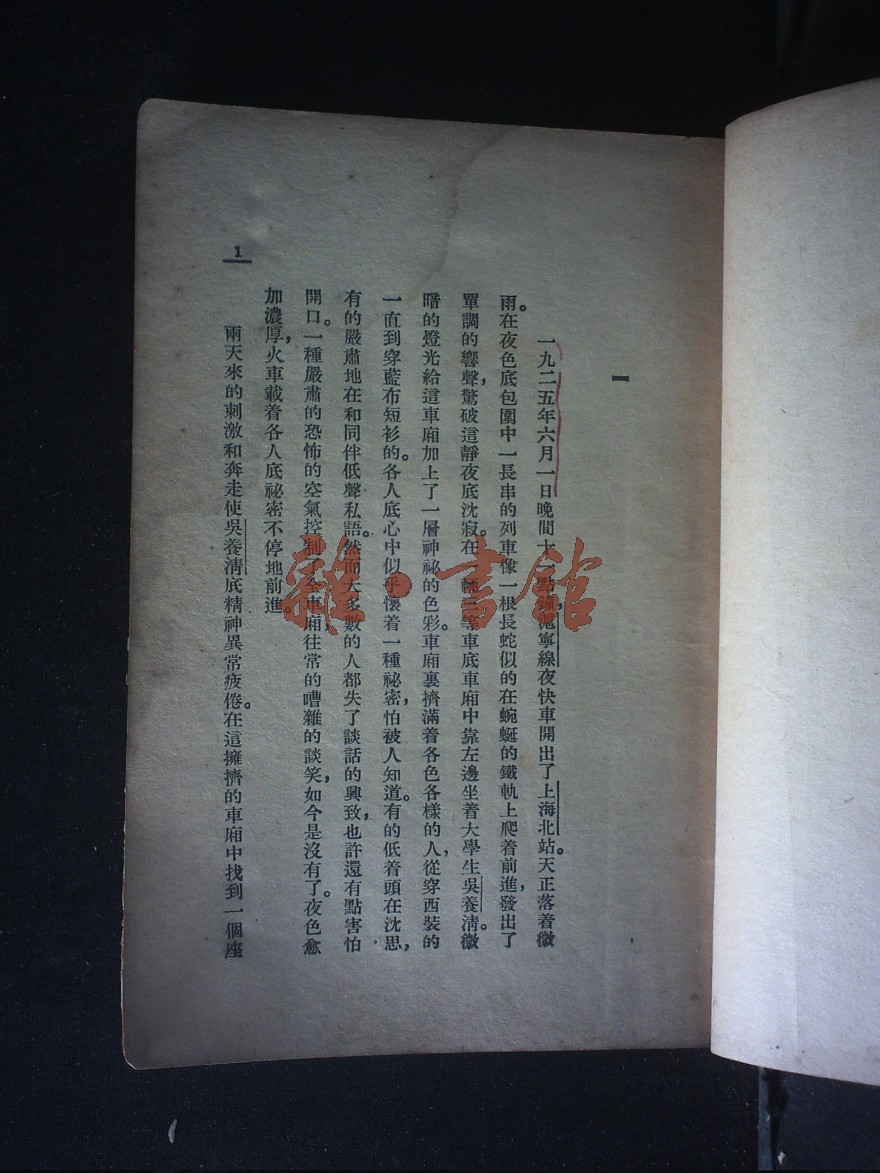 一
一九二五年六月一日晚間十一點鐘，滬寧線夜快車開出了上海北站。天正落着微
雨。在夜色底包圍中一長串的列車像一根長蛇似的在蜿蜒的鐵軌上爬着前進，發出了
單調的響聲，驚破這靜夜底沈寂。在一輛三等車底車廂中靠左邊坐着大學生吳養淸。微
暗的燈光給這車廂加上了一層神祕的色彩。車廂裏擠滿着各色各樣的人，從穿西裝的
一直到穿藍布短衫的。各人底心中似乎懷着一種祕密，怕被人知道。有的低着頭在沈思，
有的嚴肅地在和同伴低聲私語。然而大多數的人都失了談話的興致，也許還有點害怕
開口。一種嚴肅的恐怖的空氣控制了全車廂。往常的嘈雜的談笑，如今是沒有了。夜色愈
加濃厚，火車載着各人底祕密不停地前進。
兩天來的刺激和奔走使吳養淸底精神異常疲倦。在這擁擠的車廂中找到一個座
1
雜·書館